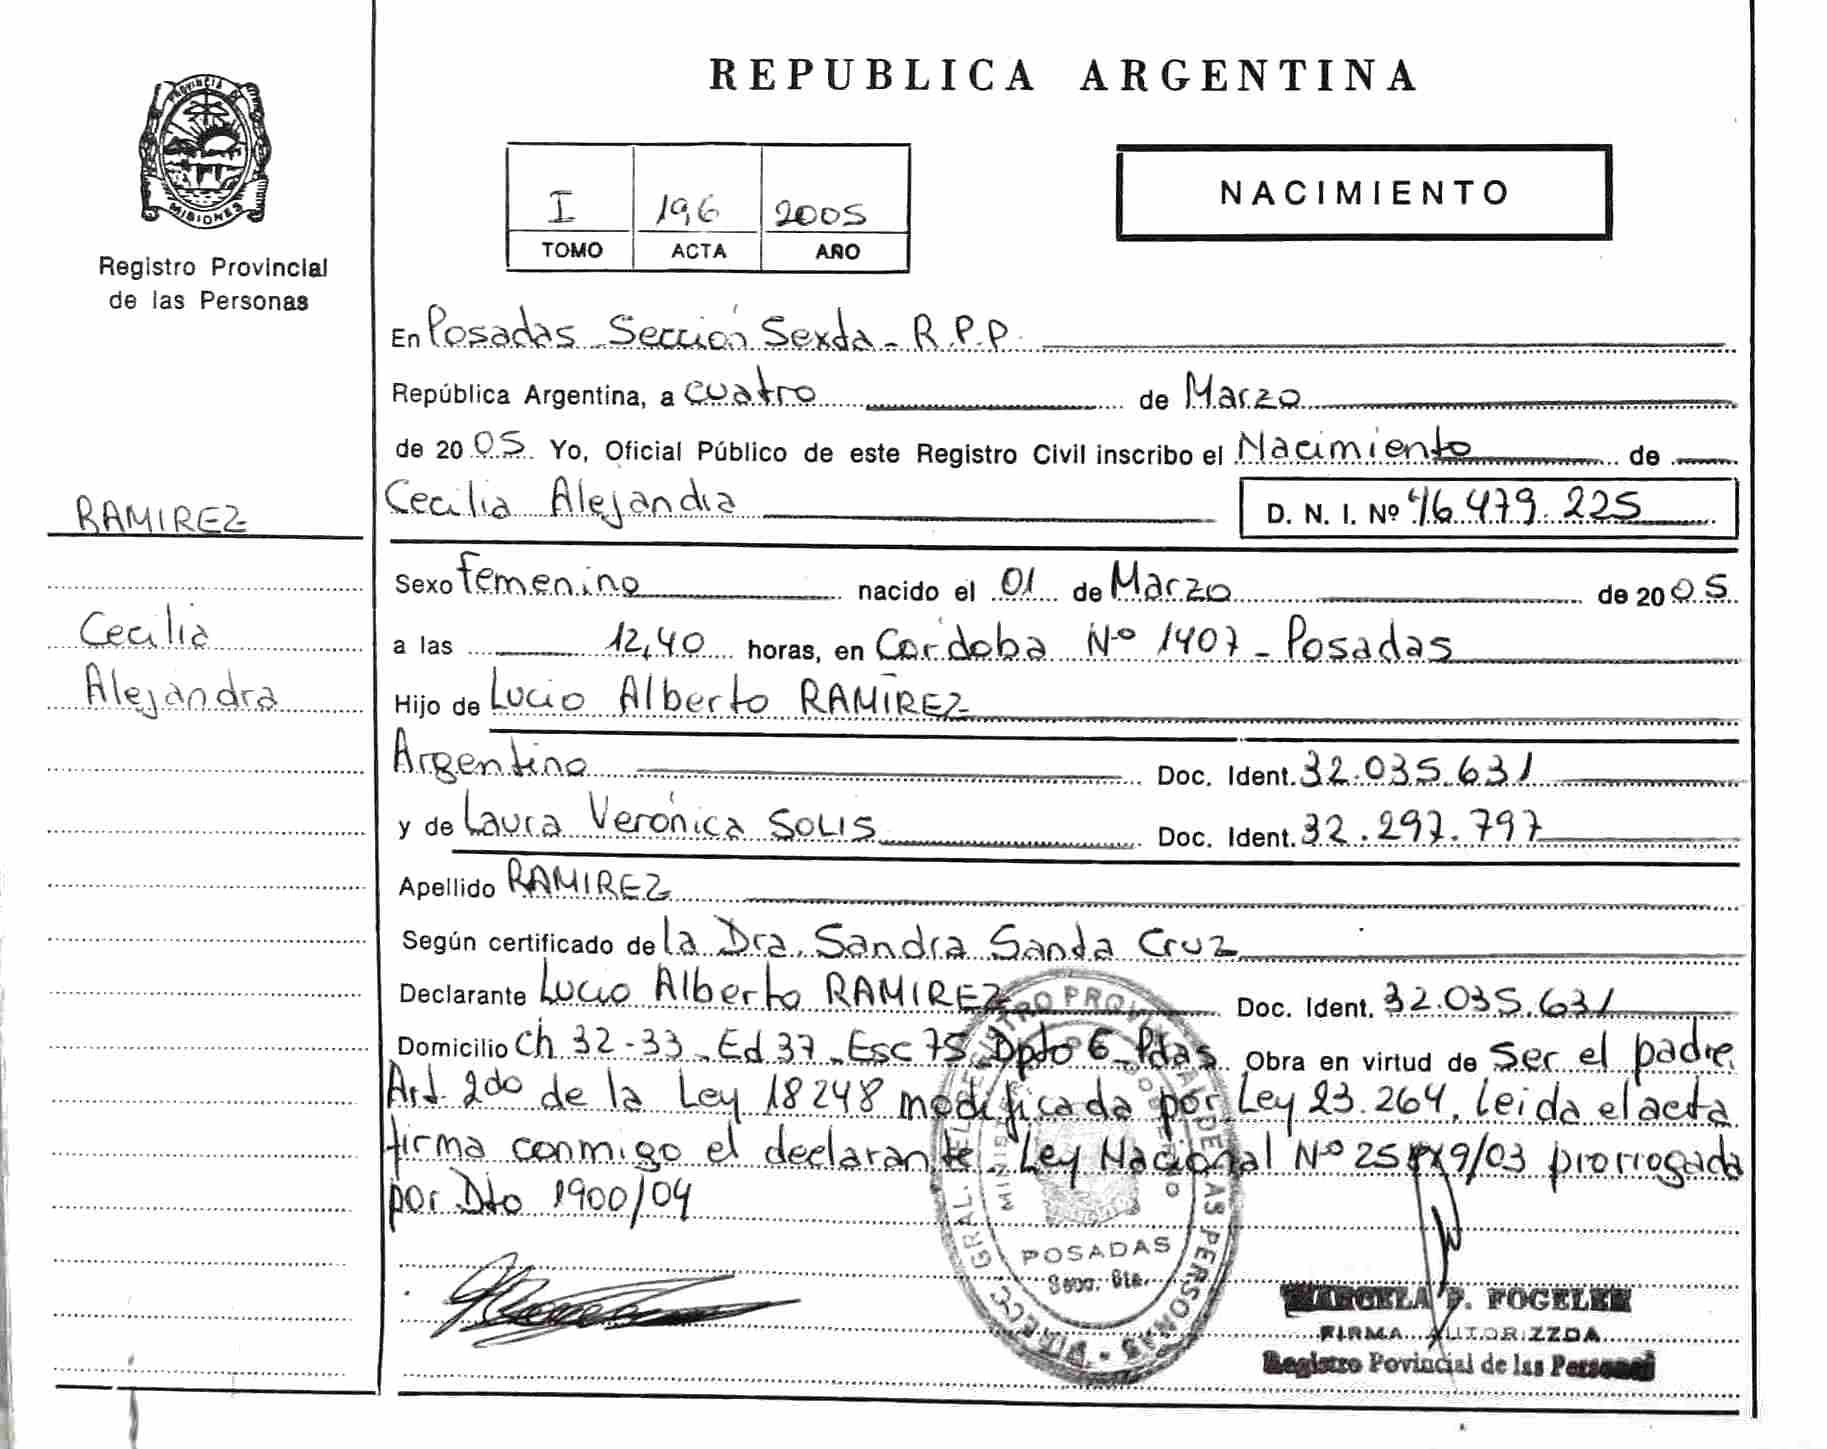 REPUBLICA ARGENTINA
PROVINCIA DE
MISIONES
Registro Provincial
de las Personas
I 196 2005
TOMO ACTA AÑO
NACIMIENTO
En Posadas - Sección Sexta - R.P.P.
República Argentina, a cuatro de Marzo
de 2005 Yo, Oficial Público de este Registro Civil inscribo el Nacimiento de
RAMIREZ
Cecilia Alejandra D. N. I. Nº 46.479.225
Sexo Femenino nacido el 01 de Marzo de 2005
Cecilia
a las 12,40 horas, en Córdoba Nº 1407 - Posadas
Alejandra
Hijo de Lucio Alberto RAMÍREZ
Argentino Doc. Ident. 32.035.631
y de Laura Verónica SOLIS Doc. Ident. 32.297.797
Apellido RAMIREZ
Según certificado de la Dra. Sandra Santa Cruz
Declarante Lucio Alberto RAMIREZ Doc. Ident. 32.035.631
Domicilio Ch 32-33 - Ed 37 - Esc 75 Dpto 6 - Pdas. Obra en virtud de Ser el padre.
Art. 2do de la Ley 18248 modificada por Ley 23.264. Leida el acta
firma conmigo el declarante. Ley Nacional Nº 25819/03 prorrogada
por Dto 1900/04
POSADAS
Secc. 6ta.
MARCELA P. FOGELER
FIRMA AUTORIZZDA
Registro Povincial de las Personas